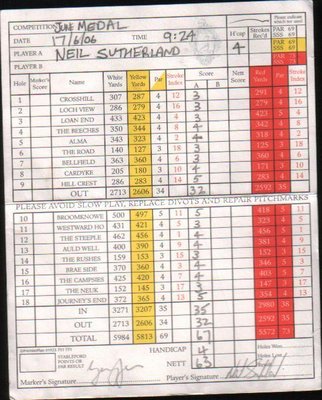 COMPETITION JUNE MEDAL
Please indicate which tee used
DATE 17/6/06 TIME 9:24 H'cap Strokes Rec'd PAR 69 SSS 69
PLAYER A NEIL SUTHERLAND 4 PAR 69
PLAYER B PAR 73
Hole Marker's Score Name White Yards Yellow Yards Par Stroke Index Score A B Nett Score Red Yards Par Stroke Index
1 CROSSHILL 307 287 4 12 3 291 4 12
2 LOCH VIEW 286 279 4 16 3 279 4 16
3 LOAN END 433 423 4 4 3 423 5 4
4 THE BEECHES 350 344 4 8 4 342 4 8
5 ALMA 343 323 4 2 4 318 4 2
6 THE ROAD 140 127 3 18 3 125 3 18
7 BELLFIELD 363 360 4 6 3 360 4 6
8 CARDYKE 205 180 3 10 4 171 3 10
9 HILL CREST 286 283 4 14 5 283 4 14
OUT 2713 2606 34 32 2592 35
PLEASE AVOID SLOW PLAY, REPLACE DIVOTS AND REPAIR PITCHMARKS
10 BROOMKNOWE 500 497 5 11 5 418 5 11
11 WESTWARD HO 431 421 4 5 3 405 5 5
12 THE STEEPLE 462 456 4 1 4 456 5 1
13 AULD WELL 400 390 4 9 4 381 4 9
14 THE RUSHES 159 153 3 15 3 152 3 15
15 BRAE SIDE 370 360 4 3 4 344 4 3
16 THE CAMPSIES 425 420 4 7 4 403 5 7
17 THE NEUK 152 145 3 17 3 147 3 17
18 JOURNEY'S END 372 365 4 13 5 354 4 13
IN 3271 3207 35 35 2980 38
OUT 2713 2606 34 32 2592 35
TOTAL 5984 5813 69 67 5572 73
STABLEFORD POINTS OR PAR RESULT HANDICAP 4 Holes Won
NETT 63 Holes Lost
Marker's Signature Player's Signature